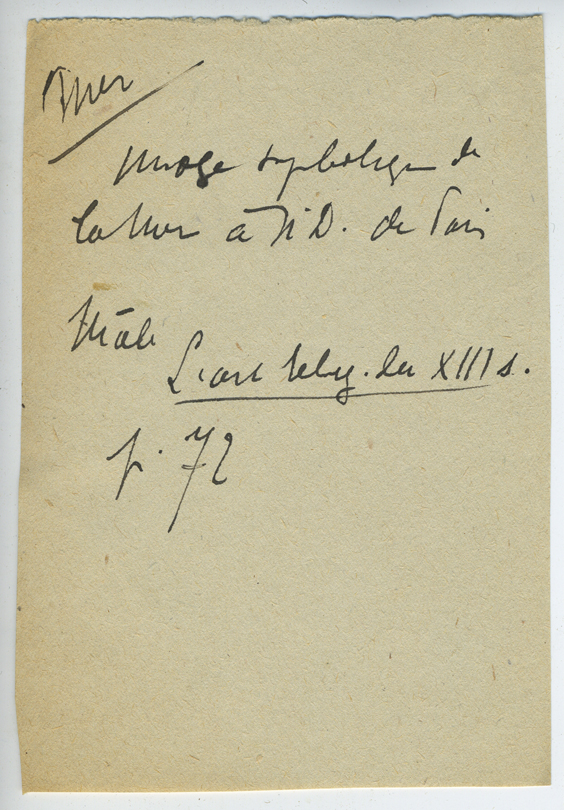 Mer
Image symbolique de
la Mer à N.D. de Paris
Mâle
L'art relig. du XIII s.
p. 72